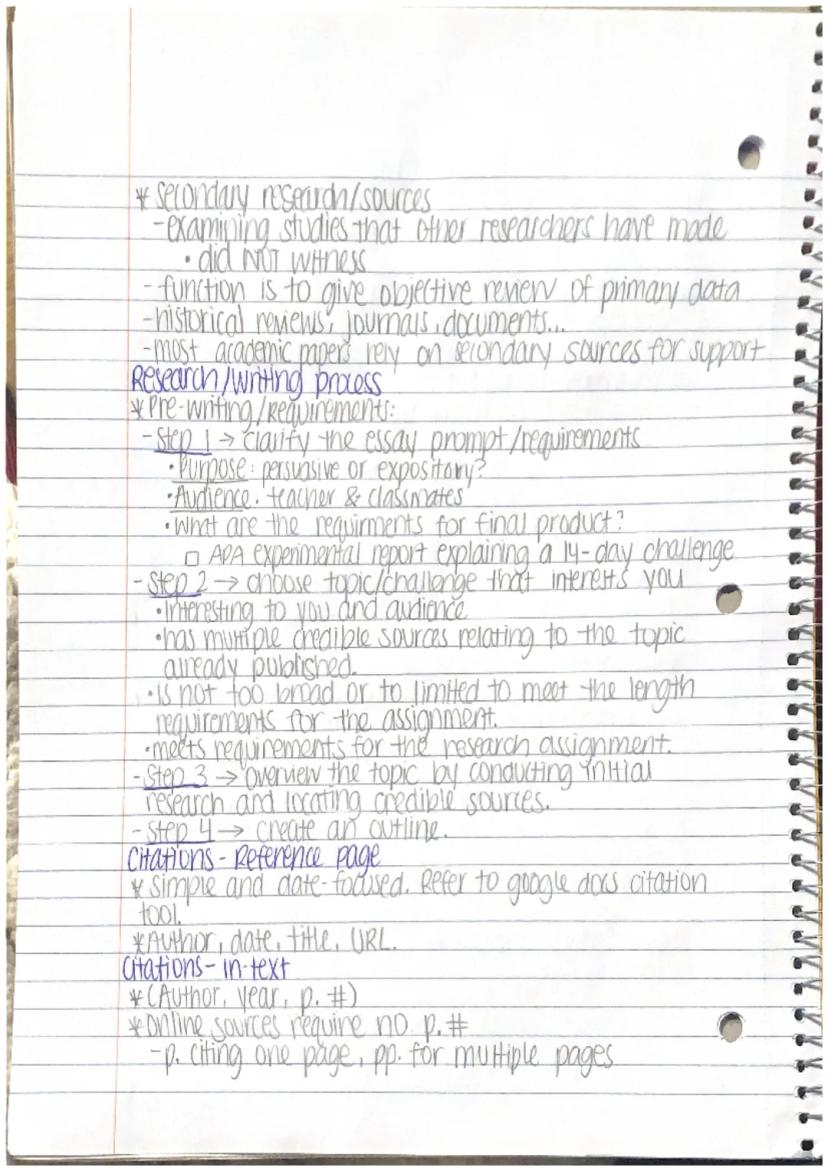 * Secondary research/sources
-examining studies that other researchers have made
• did NOT witness
- function is to give objective review of primary data
-historical reviews, journals, documents...
-most academic papers rely on secondary sources for support
Research/writing process
* Pre-writing/Requirements:
- Step 1 → clarify the essay prompt/requirements
• Purpose: persuasive or expository?
• Audience. teacher & classmates
• What are the requirments for final product?
□ APA experimental report explaining a 14-day challenge
- Step 2 → choose topic/challenge that interests you
• interesting to you and audience
• has multiple credible sources relating to the topic
already published.
• Is not too broad or to limited to meet the length
requirements for the assignment.
• meets requirements for the research assignment.
- Step 3 → Overview the topic by conducting initial
research and locating credible sources.
- Step 4 → create an outline.
Citations - Reference page
* Simple and date-focused. Refer to google docs citation
tool.
* Author, date, title, URL.
Citations - in-text
* (Author, year, p. #)
* Online sources require no p. #
-p. citing one page, pp. for multiple pages